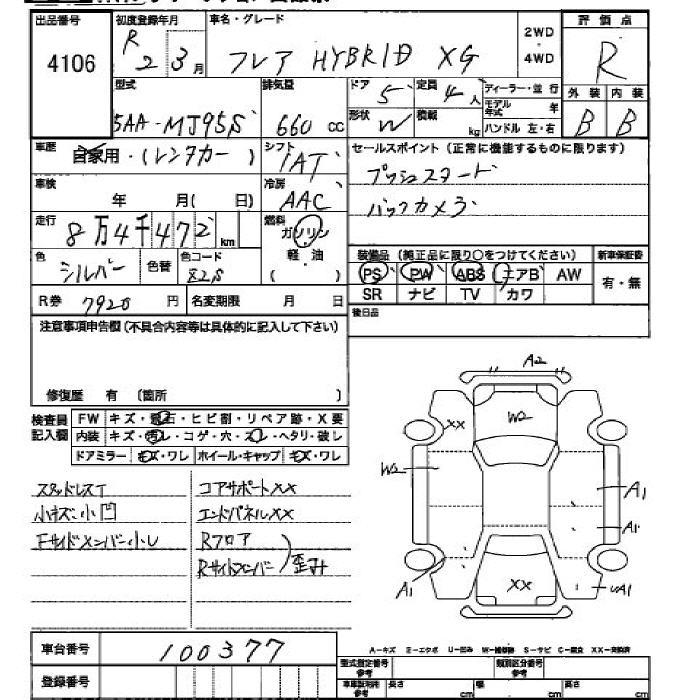 出品番号 初度登録年月 車名・グレード 2WD・4WD 評価点
4106 R 2 3月 フレア HYBRID XG R
型式 排気量 ドア 定員 ディーラー・並行 外装 内装
5AA-MJ95S 660cc 5 4人 モデル年式 年 B B
形状 W 積載 kg ハンドル 左・右
車歴 自家用・(レンタカー) シフト IAT セールスポイント (正常に機能するものに限ります)
車検 年 月( 日) 冷房 AAC プッシュスタート
バックカメラ
走行 8万4千472km 燃料 ガソリン 軽・油 ( )
色 シルバー 色替 色コード 装備品 (純正品に限り〇をつけてください) 新車保証書
PS PW ABS エアB AW 有・無
SR ナビ TV カワ
R券 7920円 名変期限 月 日
後日品
注意事項申告欄(不具合内容等は具体的に記入して下さい)
修復歴 有 (箇所 )
検査員記入欄 FW キズ・飛石・ヒビ割・リペア跡・X要
内装 キズ・汚レ・コゲ・穴・スレ・ヘタリ・破レ
ドアミラー キズ・ワレ ホイール・キャップ キズ・ワレ
A2
XX W2
W2
A1
A1
A1 XX
スタッドレスT コアサポートXX
小キズ・小凹 エンドパネルXX
Fサイドメンバー小レ Rフロア
Rサイドメンバー 歪み
車台番号 100377
A-キズ E-エクボ U-凹み W-補修跡 S-サビ C-腐食 XX-交換済
登録番号
型式指定番号 参考 類別区分番号 参考
車車証明用 参考 長さ cm 幅 cm 高さ cm